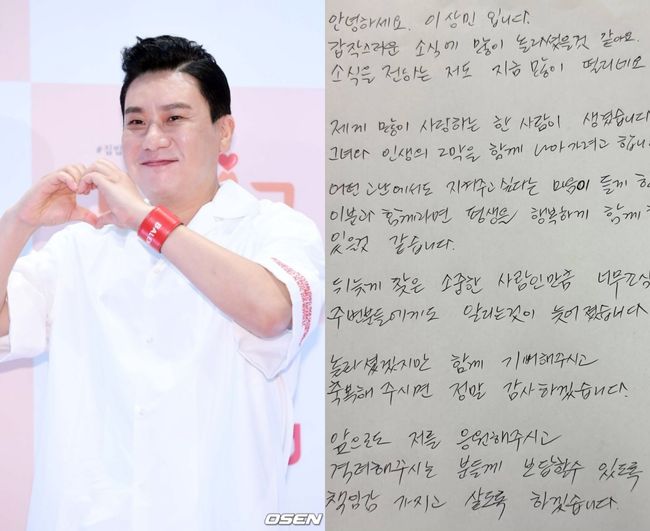 안녕하세요. 이상민 입니다.
갑작스러운 소식에 많이 놀라셨을것 같아요.
소식을 전하는 저도 지금 많이 떨리네요
제게 많이 사랑하는 한 사람이 생겼습니다
그녀와 인생의 2막을 함께 나아가려고 합니
어떤 고난에서도 지켜주고 싶다는 마음이 들게 하
이분과 함께라면 평생을 행복하게 함께 할
있을것 같습니다.
뒤늦게 찾은 소중한 사람인만큼 너무 조심
주변분들에게도 알리는것이 늦어졌습니다
놀라셨겠지만 함께 기뻐해주시고
축복해 주시면 정말 감사하겠습니다.
앞으로도 저를 응원해주시고
격려해주시는 분들께 보답할수 있도록
책임감 가지고 살도록 하겠습니다.
OSEN